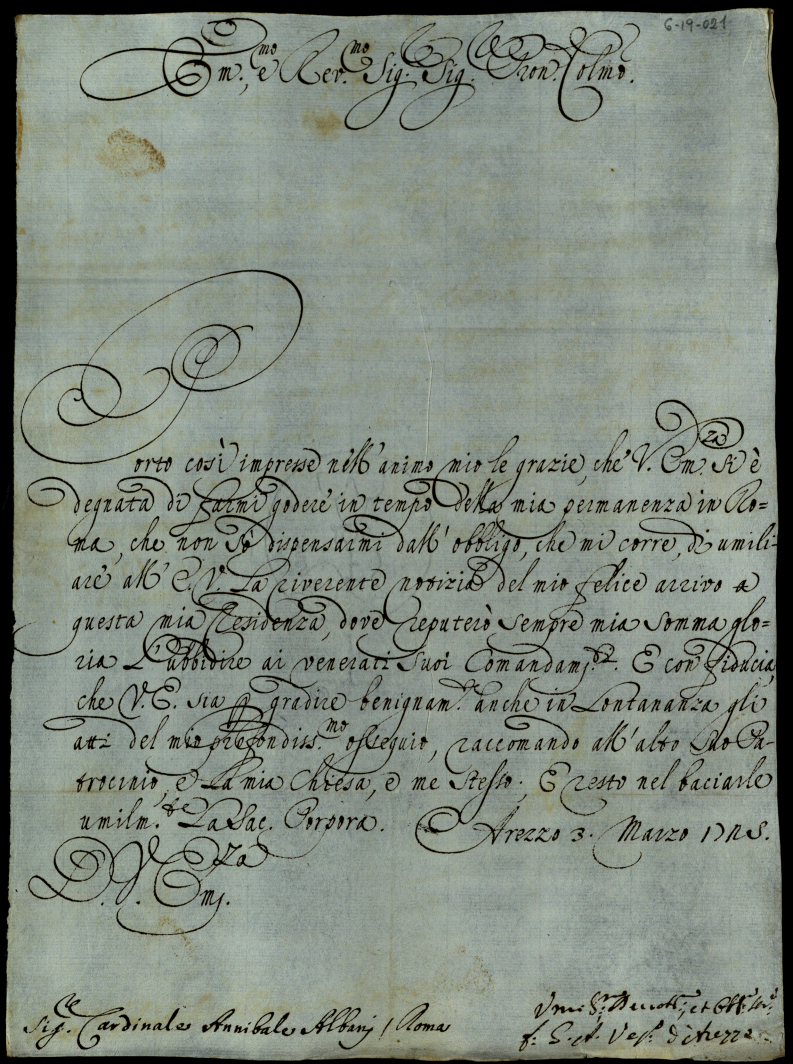 6-19-021
Em.mo e Rev.mo Sig. Sig. Pron. Colmo.
Porto così impresse nell' animo mio le grazie, che V. Em.za si è
degnata di farmi godere in tempo della mia permanenza in Ro=
ma, che non sò dispensarmi dall' obbligo, che mi corre, di umili=
are all' E. V. la riverente notizia del mio felice arrivo a
questa mia Residenza, dove reputerò sempre mia somma glo=
ria l' ubbidire ai venerati suoi Comandam.ti. E con fiducia,
che V. E. sia p gradire benignam.te anche in lontananza gli
atti del mio profondiss.mo ossequio, raccomando all' alto suo Pa-
trocinio, e la mia Chiesa, e me stesso. E resto nel baciarle
umilm.te la Sac. Porpora. Arezzo 3. Marzo
D. V. Em.za
Sig.re Cardinale Annibale Albanj / Roma
Vmi. S.re Devott. et Obb.
Ves. di Arezzo